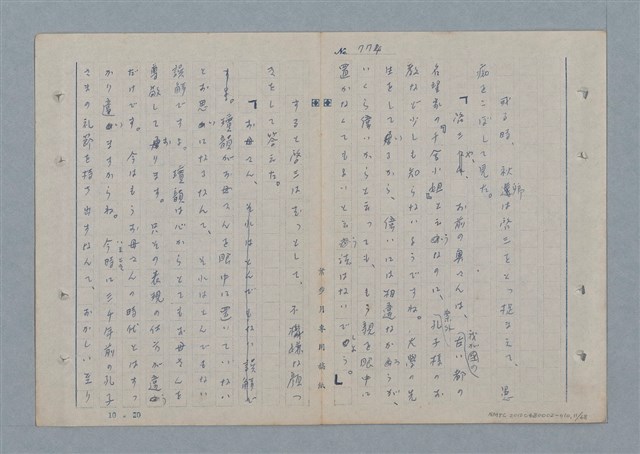 No 774
或る時、秋鴻は啓三をとつ捉まえて、愚
痴をこぼして見た。
「啓ちや、お前の奥さんは、我が国の古い都の
名望家の千金小姐と云うなのに、案外孔子様のお
教など少しも知らないようですね。大学の先
生をして居るから、偉いには相違なかろうが、
いくら偉いからと云つても、もう親を眼中に
置かなくてもよいと云う法はないでしよう。」
すると啓三はむつとして、不機嫌な顔つ
きをして答えた。
「お母さん、それはとんでもない誤解で
すよ。瓊韻がお母さんを眼中に置いていない
とお思いになるなんて、それはとんでもない
誤解ですよ。瓊韻は心からとてもお母さんを
尊敬して居ります。只その表現の仕方が違う
だけです。今はもうお母さんの時代とはすつ
かり違いますからね。今時に二千年前の孔子
さまの礼節を持ち出すなんて、おかしい至り
葉步月專用稿紙
10×20